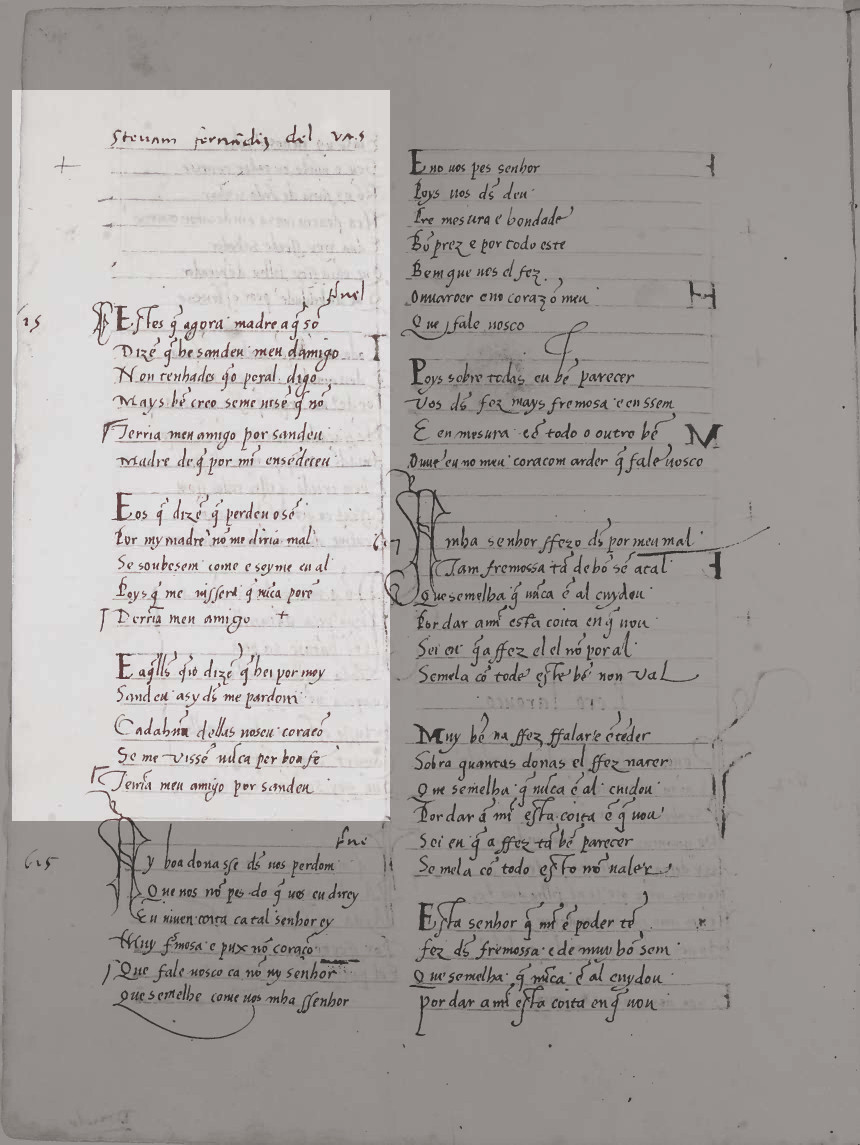 Steuam fernãdiz del uas
fnel
615
Estes q̄ agora madre aq̄ sõ
Dizẽ q̄ he sandeu meu damigo
Non tenhades q̄o por al digo
Mays bẽ creo seme uisẽ q̄ nõ
Terria meu amigo por sandeu
Madre de q̄ por mĩ ensẽdeceu
Eos q̄ dizẽ q̄ perdeu o sẽ
Por my madre nõ me diria mal
Se soubesem come e soyme eu al
Poys q̄ me uissem q̄ nũca porẽ
Derria meu amigo +
E aq̄lls q̄io dizẽ q̄ hei por moy
Sandeu asy ds̄ me pardom
Cadahũa dellas no seu coraçõ
Se me uissẽ nũca per boa fe
Terria meu amigo por sandeu
fnel
615
Ay boa dona sse ds̄ uos perdom
Que uos nõ pes do q̄ uos eu direy
Eu uiuen coita ca tal senhor ey
Muy fr̃mosa e pux nõ coraçõ
Que fale uosco ca nõ uy senhor
Que semelhe come uos mha ssenhor
E no uos pes senhor
Poys uos ds̄ deu
Tre mesura e bondade
Bõ prez e por todo este
Bem que uos el fez
Omuaroer eno corazõ meu
Que j fale uosco
Poys sobre todas eu bẽ parecer
Uos ds̄ fez mays fremosa e en ssem
E en mesura eẽ todo o outro bẽ
Ouue eu no meu coracom arder q̄ fale uosco
617
Mmha senhor ffezo ds̄ por meu mal
Tam fremossa tã de bõ sẽ atal
Que semelha q̄ nũca ẽ al cuydou
Por dar ami esta coita en q̄ uou
Sei en q̄ a ffez el el nõ por al
Semela cõ tode este bẽ non ual
Muy bẽ na ffez ffalar e ẽtẽder
Sobra quantas donas el ffez nacer
Que semelha q̄ nũca ẽ al cuidou
Por dar a mĩ esta coita ẽ q̄ uou
Sei en q̄ a ffez tã bẽ parecer
Semela cõ todo esto nõ ualer
Esta senhor q̄ mĩ ẽ poder tẽ
fez ds̄ fremossa e de muy bõ sem
Que semelha q̄ nũca ẽ al cuydou
por dar a mĩ esta coita en q̄ uou